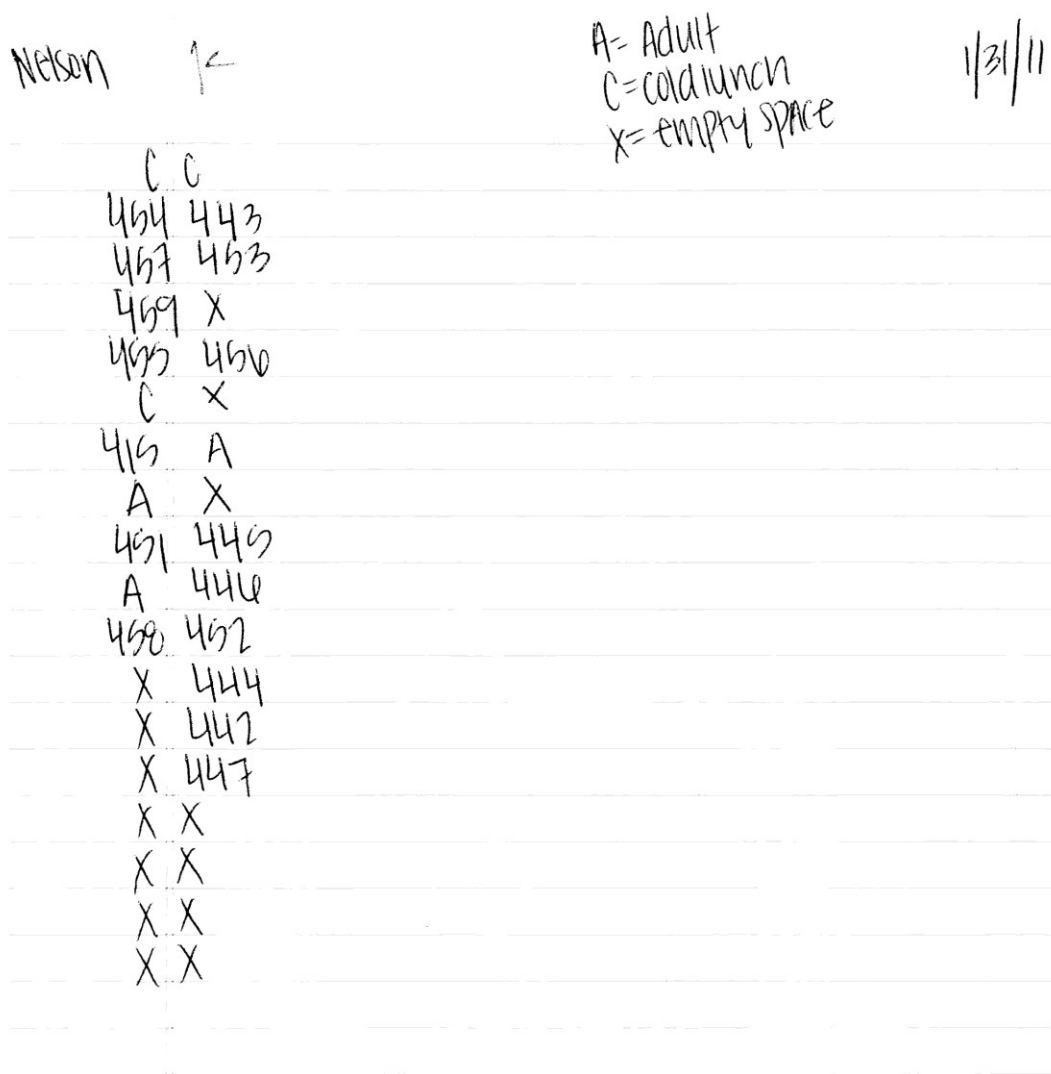 Nelson K
A= Adult
C=cold lunch
X= empty space
1/31/11
C C
454 443
457 453
459 X
455 456
C X
415 A
A X
451 445
A 446
458 452
X 444
X 442
X 447
X X
X X
X X
X X